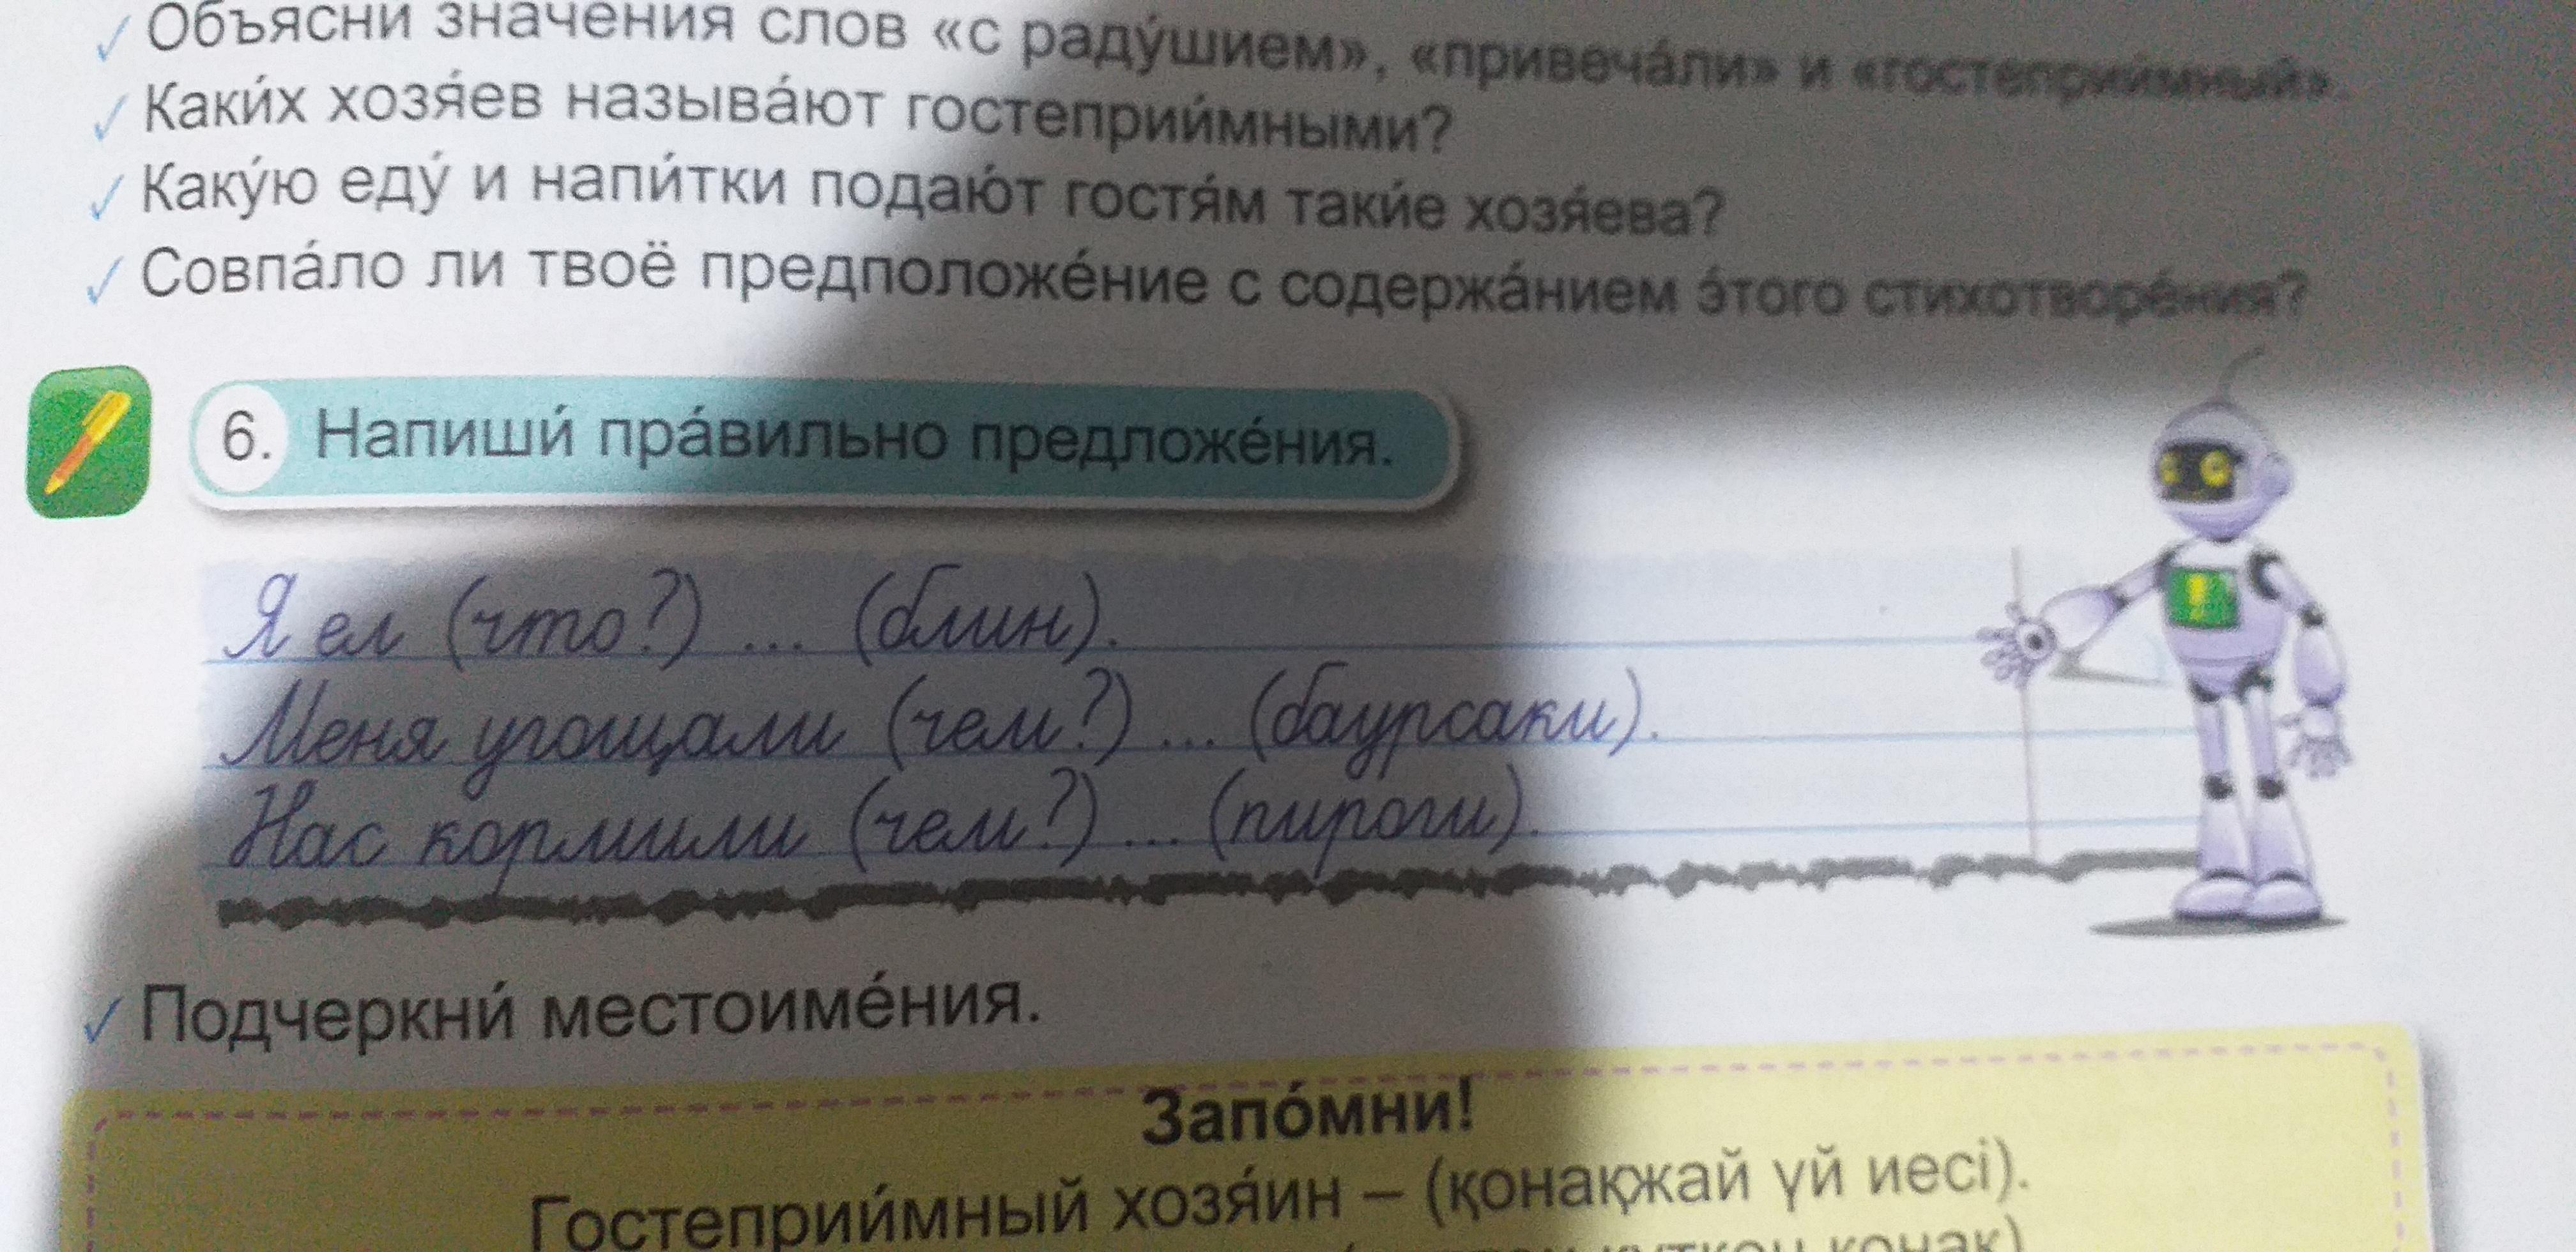 ✓ Объясни́ значе́ния слов «с раду́шием», «привеча́ли» и «гостеприи́мный».
✓ Каки́х хозя́ев называ́ют гостеприи́мными?
✓ Каку́ю еду́ и напи́тки подаю́т гостя́м таки́е хозя́ева?
✓ Совпа́ло ли твоё предположе́ние с содержа́нием э́того стихотворе́ния?
6. Напиши́ пра́вильно предложе́ния.
Я ел (что?) ... (блин).
Меня угощали (чем?) ... (баурсаки).
Нас кормили (чем?) ... (пироги).
✓ Подчеркни́ местоиме́ния.
Запо́мни!
Гостеприи́мный хозя́ин – (қонақжай үй иесі).
қонақ)